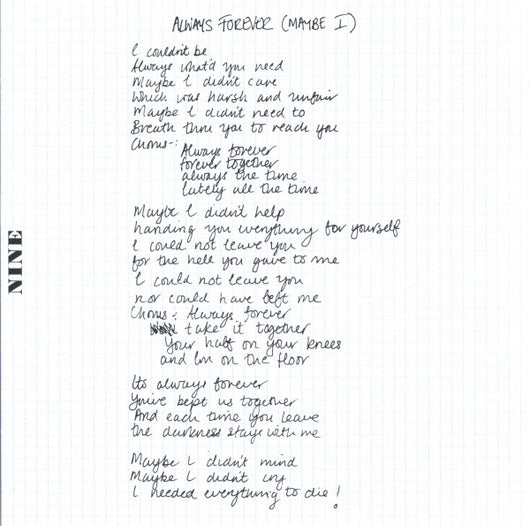 ALWAYS FOREVER (MAYBE I)
I couldn't be
Always what'd you need
Maybe I didn't care
Which was harsh and unfair
Maybe I didn't need to
Breath thru you to reach you
Chorus-:
Always forever
forever together
always the time
lately all the time
Maybe I didn't help
handing you everything for yourself
I could not leave you
for the hell you gave to me
I could not leave you
nor could have left me
Chorus: Always forever
take it together
Your half on your knees
and Im on the floor
Its always forever
You've kept us together
And each time you leave
the darkness stays with me
Maybe I didn't mind
Maybe I didn't cry
I needed everything to die!
NINE